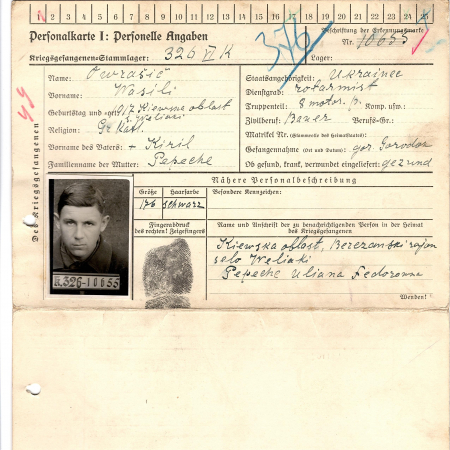 1 2 3 4 5 6 7 8 9 10 11 12 13 14 15 16 17 18 19 20 21 22 23 24 25
Personalkarte I: Personelle Angaben
Beschriftung der Erkennungsmarke
Kriegsgefangenen-Stammlager: 326 VI K
376
Nr. 10655
Lager:
Des Kriegsgefangenen
Name: Owrašič
Vorname: Wasili
Geburtstag und -ort: 1917. Kiewma oblast
s. Weliaki
Religion: Gr. Kath.
Vorname des Vaters: + Kiril
Familienname der Mutter: Pepeche
Staatsangehörigkeit: Ukrainee
Dienstgrad: rotarmist
Truppenteil: 8 motor. p. Komp. usw.:
Zivilberuf: Bauer Berufs-Gr.:
Matrikel Nr. (Stammrolle des Heimatstaates):
Gefangennahme (Ort und Datum): gor. Gorodok
Ob gesund, krank, verwundet eingeliefert: gezund
Nähere Personalbeschreibung
Größe Haarfarbe Besondere Kennzeichen:
176 schwarz
Fingerabdruck
des rechten! Zeigefingers
Name und Anschrift der zu benachrichtigenden Person in der Heimat
des Kriegsgefangenen
Kiewska oblast, Berezanski rajon
selo Weliaki
Pepeche Uliana Fedorowna
Wenden!
K.326-10655